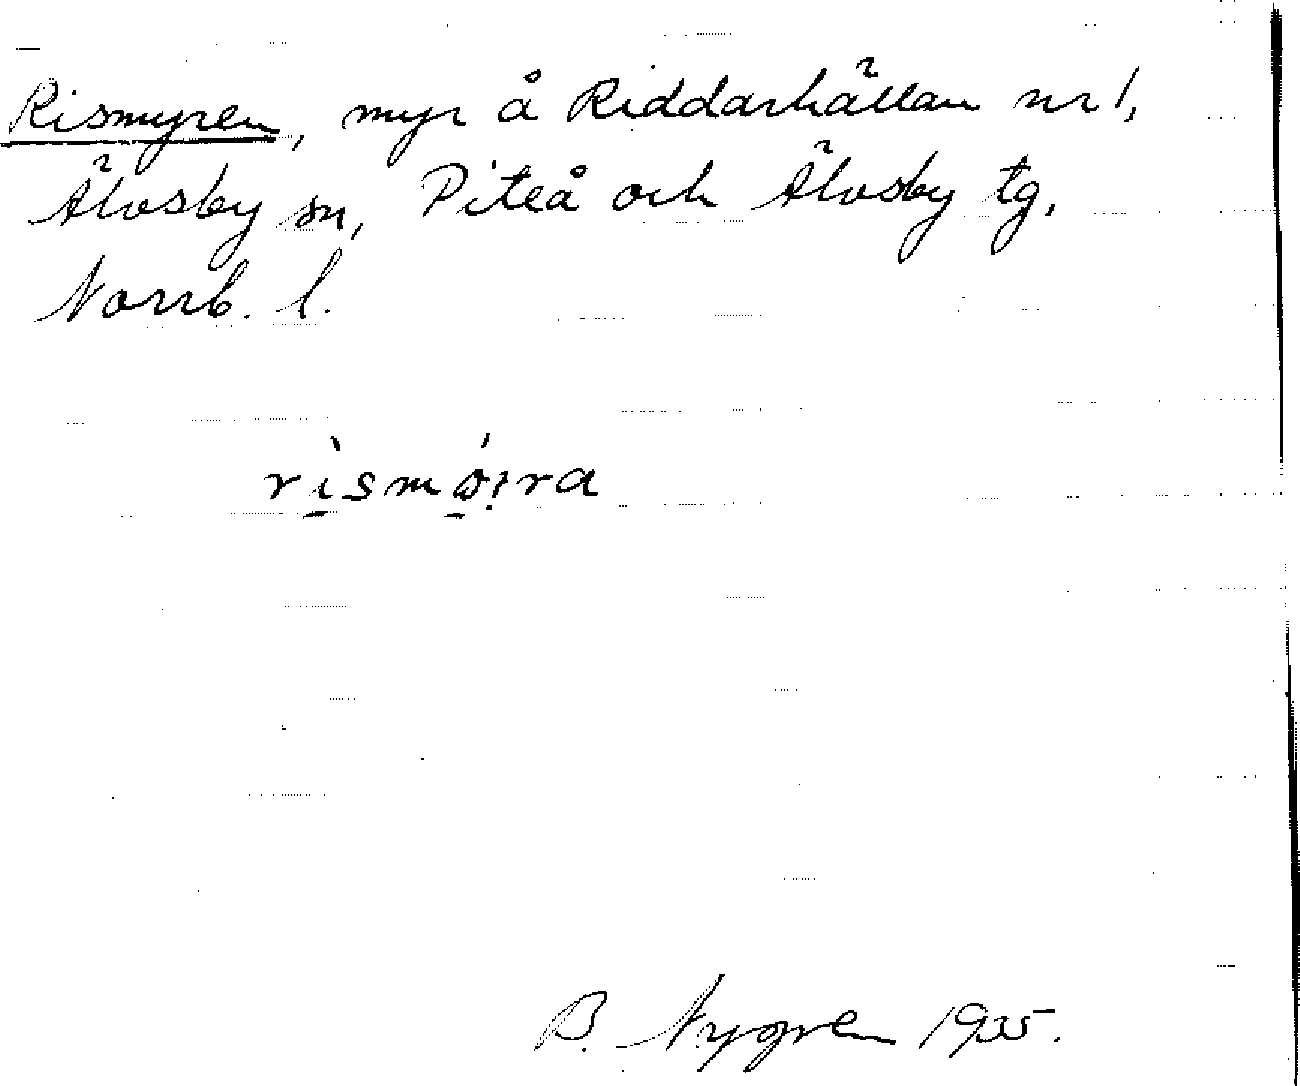 Rismyren, myr å Riddarhällan nr 1,
Älvsby sn, Piteå och Älvsby tg,
Norrb. l.
rìsmǿira
B. Nygren 1935.